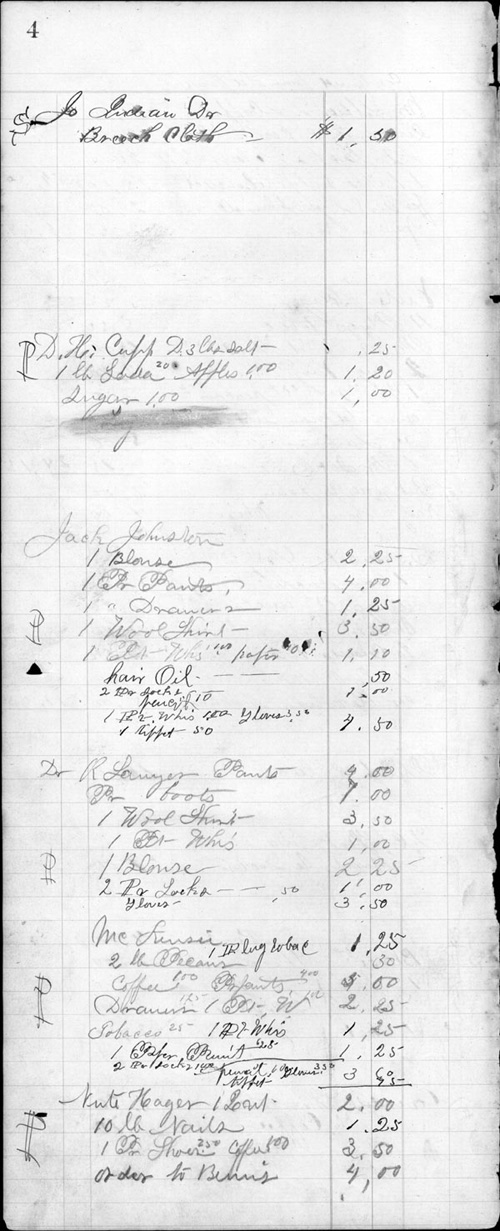 4
Jo Indian Dr
Breech Cloth $ 1.50
D. H. Cupp D. 3 lbs salt .25
1 lb Soda 20 Apples 1.00 1.20
Sugar 1.00 1.00
Jack Johnston
1 Blouse 2.25
1 Pr Pants, 4.00
1 " Drawers 1.25
1 Wool Shirt 3.50
1 Pt Whis 1.00 paper 10 1.10
hair Oil .50
2 Pr Socks 1.00
pencil 10
1 Pt. Whis 1.00 Gloves 3.50 4.50
1 tippet 50
Dr R Sawyer Pants 4.00
Pr boots 7.00
1 Wool Shirt 3.50
1 Pt Whis 1.00
1 Blouse 2.25
2 Pr Socks .50 1.00
Gloves 3.50
McKinsie 1 Plug tobac 1.25
2 lb Pecans 30
Coffee 1.00 Pr pants 4.00 5.00
Drawers 1.25 1 Pt. W 1.00 2.25
Tobacco 25 1 Pt Whis 1.25
1 Paper 1.25
2 Pr Socks 1.00 pencil 10 Gloves 3.50 3.60
tippet
Nute Hager 1 2.00
10 lb Nails 1.25
1 Pr Shoes 2.50 Coffee 1.00 3.50
order to 4.00